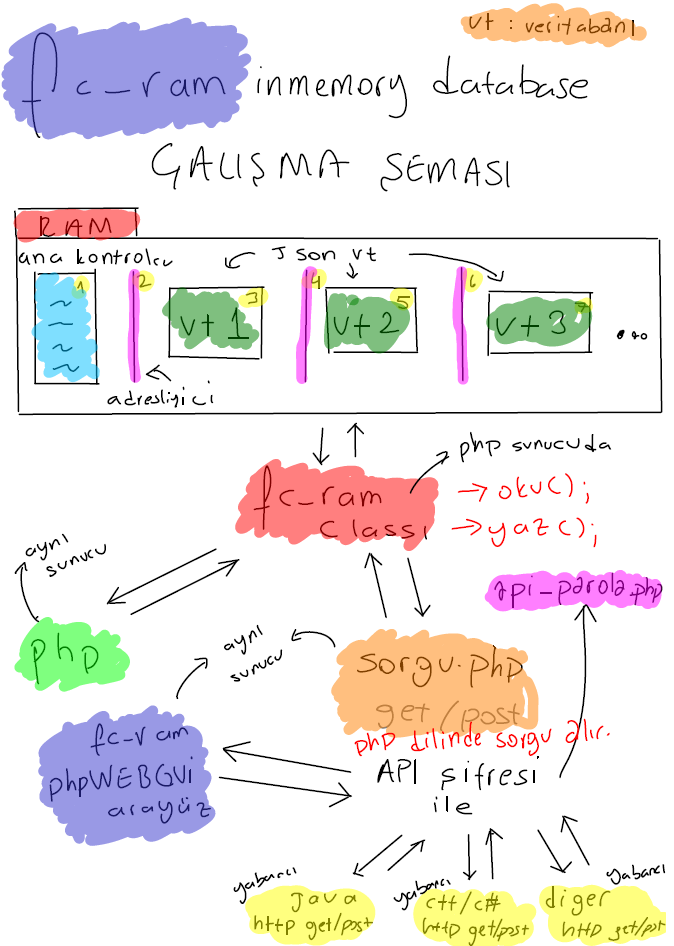 vt : veritabanı
fc_ram inmemory database
ÇALIŞMA ŞEMASI
RAM
ana kontrolcu
Json vt
1
2
3
4
5
6
7
vt 1
vt 2
vt 3
...
adresliyici
php sunucuda
fc_ram
classı
→ oku();
→ yaz();
aynı
sunucu
api_parola.php
php
aynı
sunucu
sorgu.php
get/post
php dilinde sorgu alır.
fc-ram
phpWEBGUi
arayüz
API şifresi
ile
yabancı
java
http get/post
yabancı
c++/c#
http get/post
yabancı
diger
http get/post